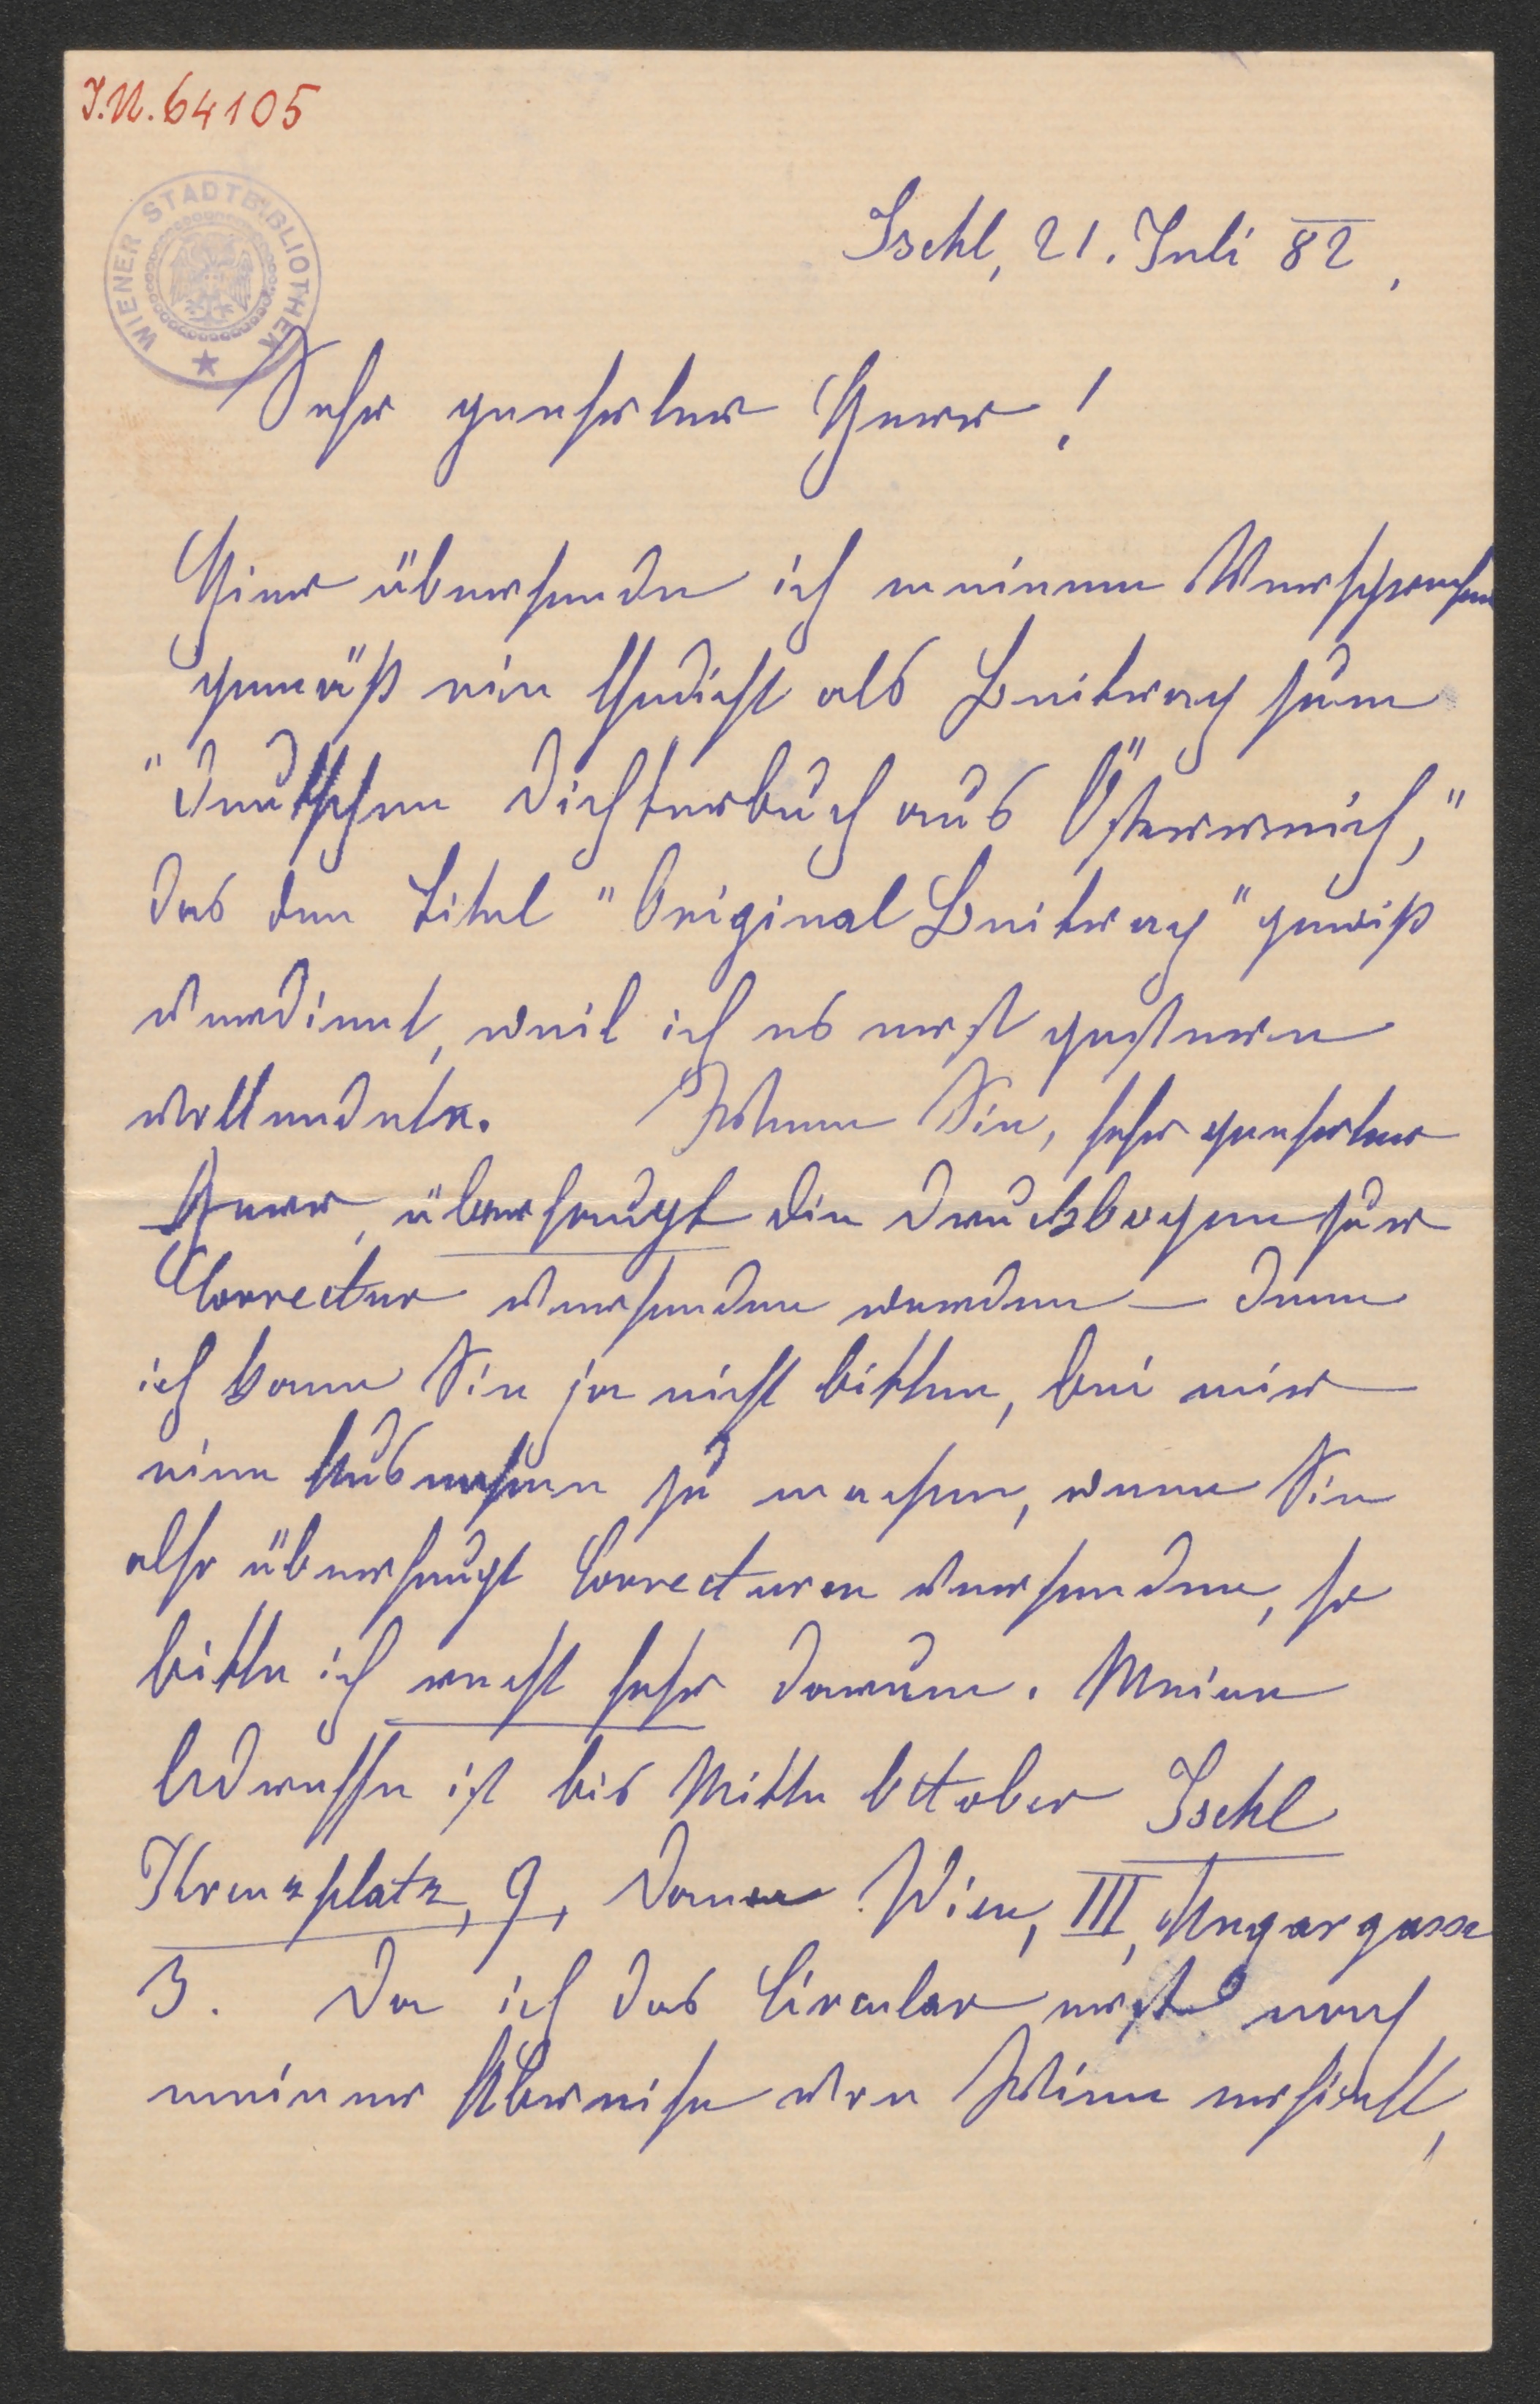 I.N. 64105
WIENER STADTBIBLIOTHEK
Ischl, 21. Juli 82,
Sehr geehrter Herr!
Hier übersende ich meinem Versprechen
gemäß ein Gedicht als Beitrag zum
"Deutschen Dichterbuch aus Österreich,"
das den Titel "Original Beitrag" gewiß
verdient, weil ich es erst gestern
vollendete. Wenn Sie, sehr geehrter
Herr, überhaupt die Druckbogen zur
Correctur versenden werden – denn
ich kann Sie ja nicht bitten, bei mir
eine Ausnahme zu machen, wenn Sie
also überhaupt Correcturen versenden, so
bitte ich recht sehr darum. Meine
Adresse ist bis Mitte October Ischl
Kreuzplatz, 9, dann Wien, III, Ungargasse
3. Da ich das Circular erst nach
meiner Abreise von Wien erhielt,